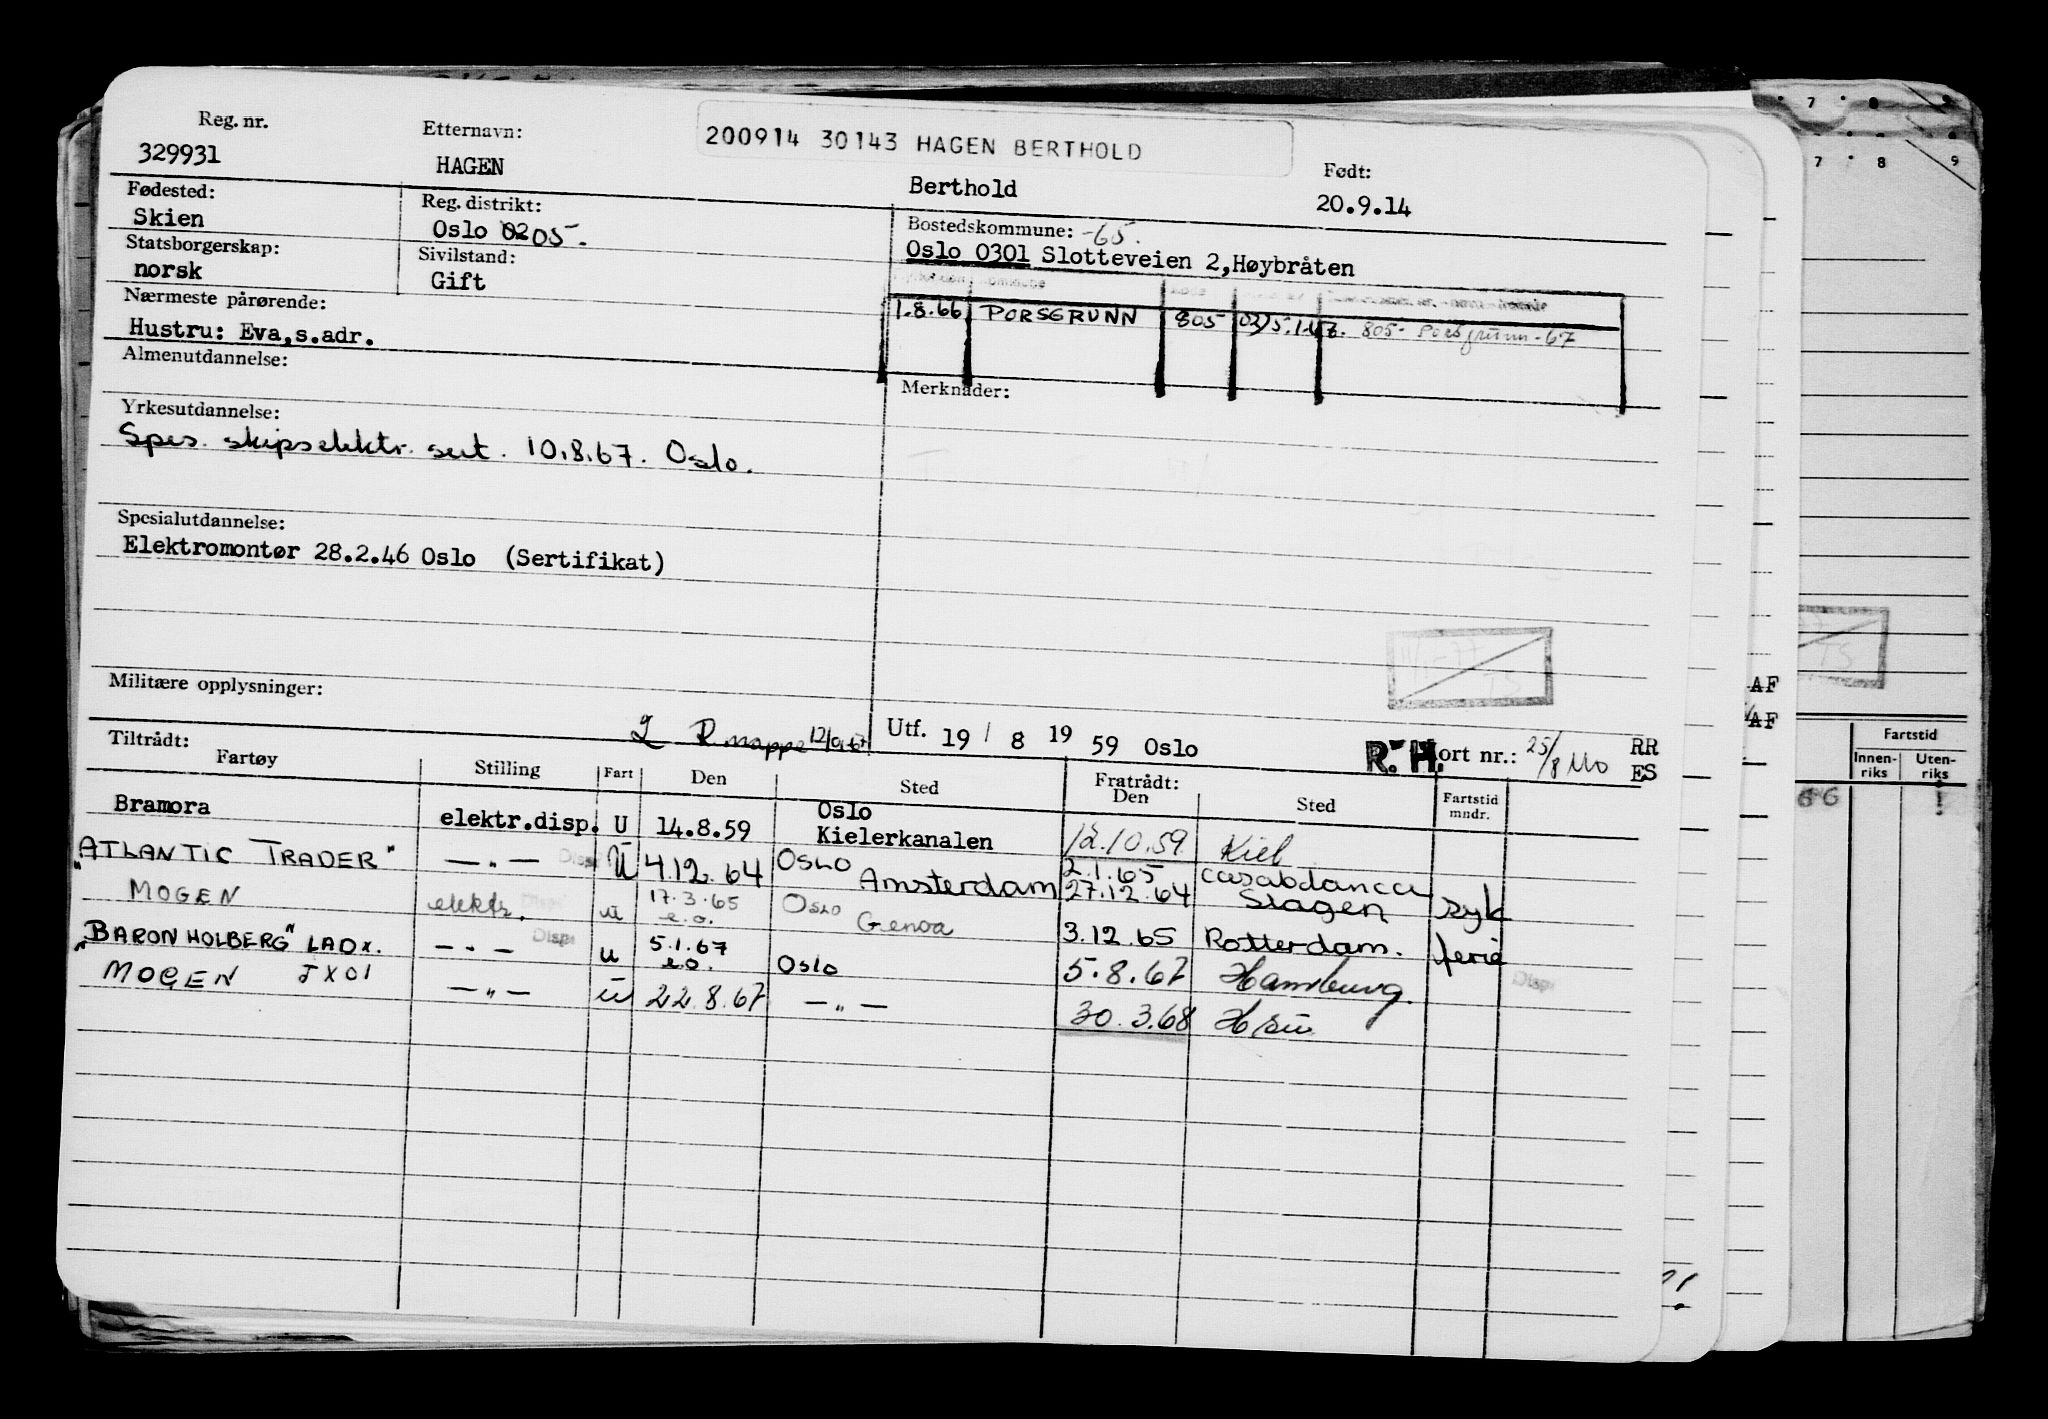 Reg. nr. Etternavn: 200914 30143 HAGEN BERTHOLD Født:
329931 HAGEN Berthold 20.9.14
Fødested: Reg. distrikt: Bostedskommune: -65.
Skien Oslo 02 05. Oslo 0301 Slotteveien 2,Høybråten
Statsborgerskap: Sivilstand:
norsk Gift
Nærmeste pårørende: 1.8.66 PORSGRUNN 805 805- Porsgrunn-67
Hustru: Eva,s.adr.
Almenutdannelse: Merknader:
Yrkesutdannelse:
Spes. skipselektr. sert. 10.8.67. Oslo.
Spesialutdannelse:
Elektromontør 28.2.46 Oslo (Sertifikat)
11/1-77
TS
Militære opplysninger:
R mappe 12/9.67 Utf. 19 / 8 19 59 Oslo R.H. ort nr.: 25/8 Mo RR
ES
Tiltrådt: Fratrådt:
Fartøy Stilling Fart Den Sted Den Sted Fartstid mndr.
Bramora elektr.disp. U 14.8.59 Oslo Kielerkanalen 12.10.59 Kiel
"ATLANTIC TRADER" — „ — Disp U 4.12.64 OSLO Amsterdam 2.1.65 27.12.64 Casablanca Slagen syk
MOGEN elektr. Disp u 17.3.65 e.o. Oslo Genoa 3.12.65 Rotterdam. ferie
"BARON HOLBERG" LADX. — „ — Disp u 5.1.67 e.o. Oslo 5.8.67 Hamburg. Disp
MOGEN JXOI — „ — u 22.8.67 — „ — 30.3.68
7 8 9
7 8 9
AF
AF
TS
Fartstid
Innenriks Utenriks
66